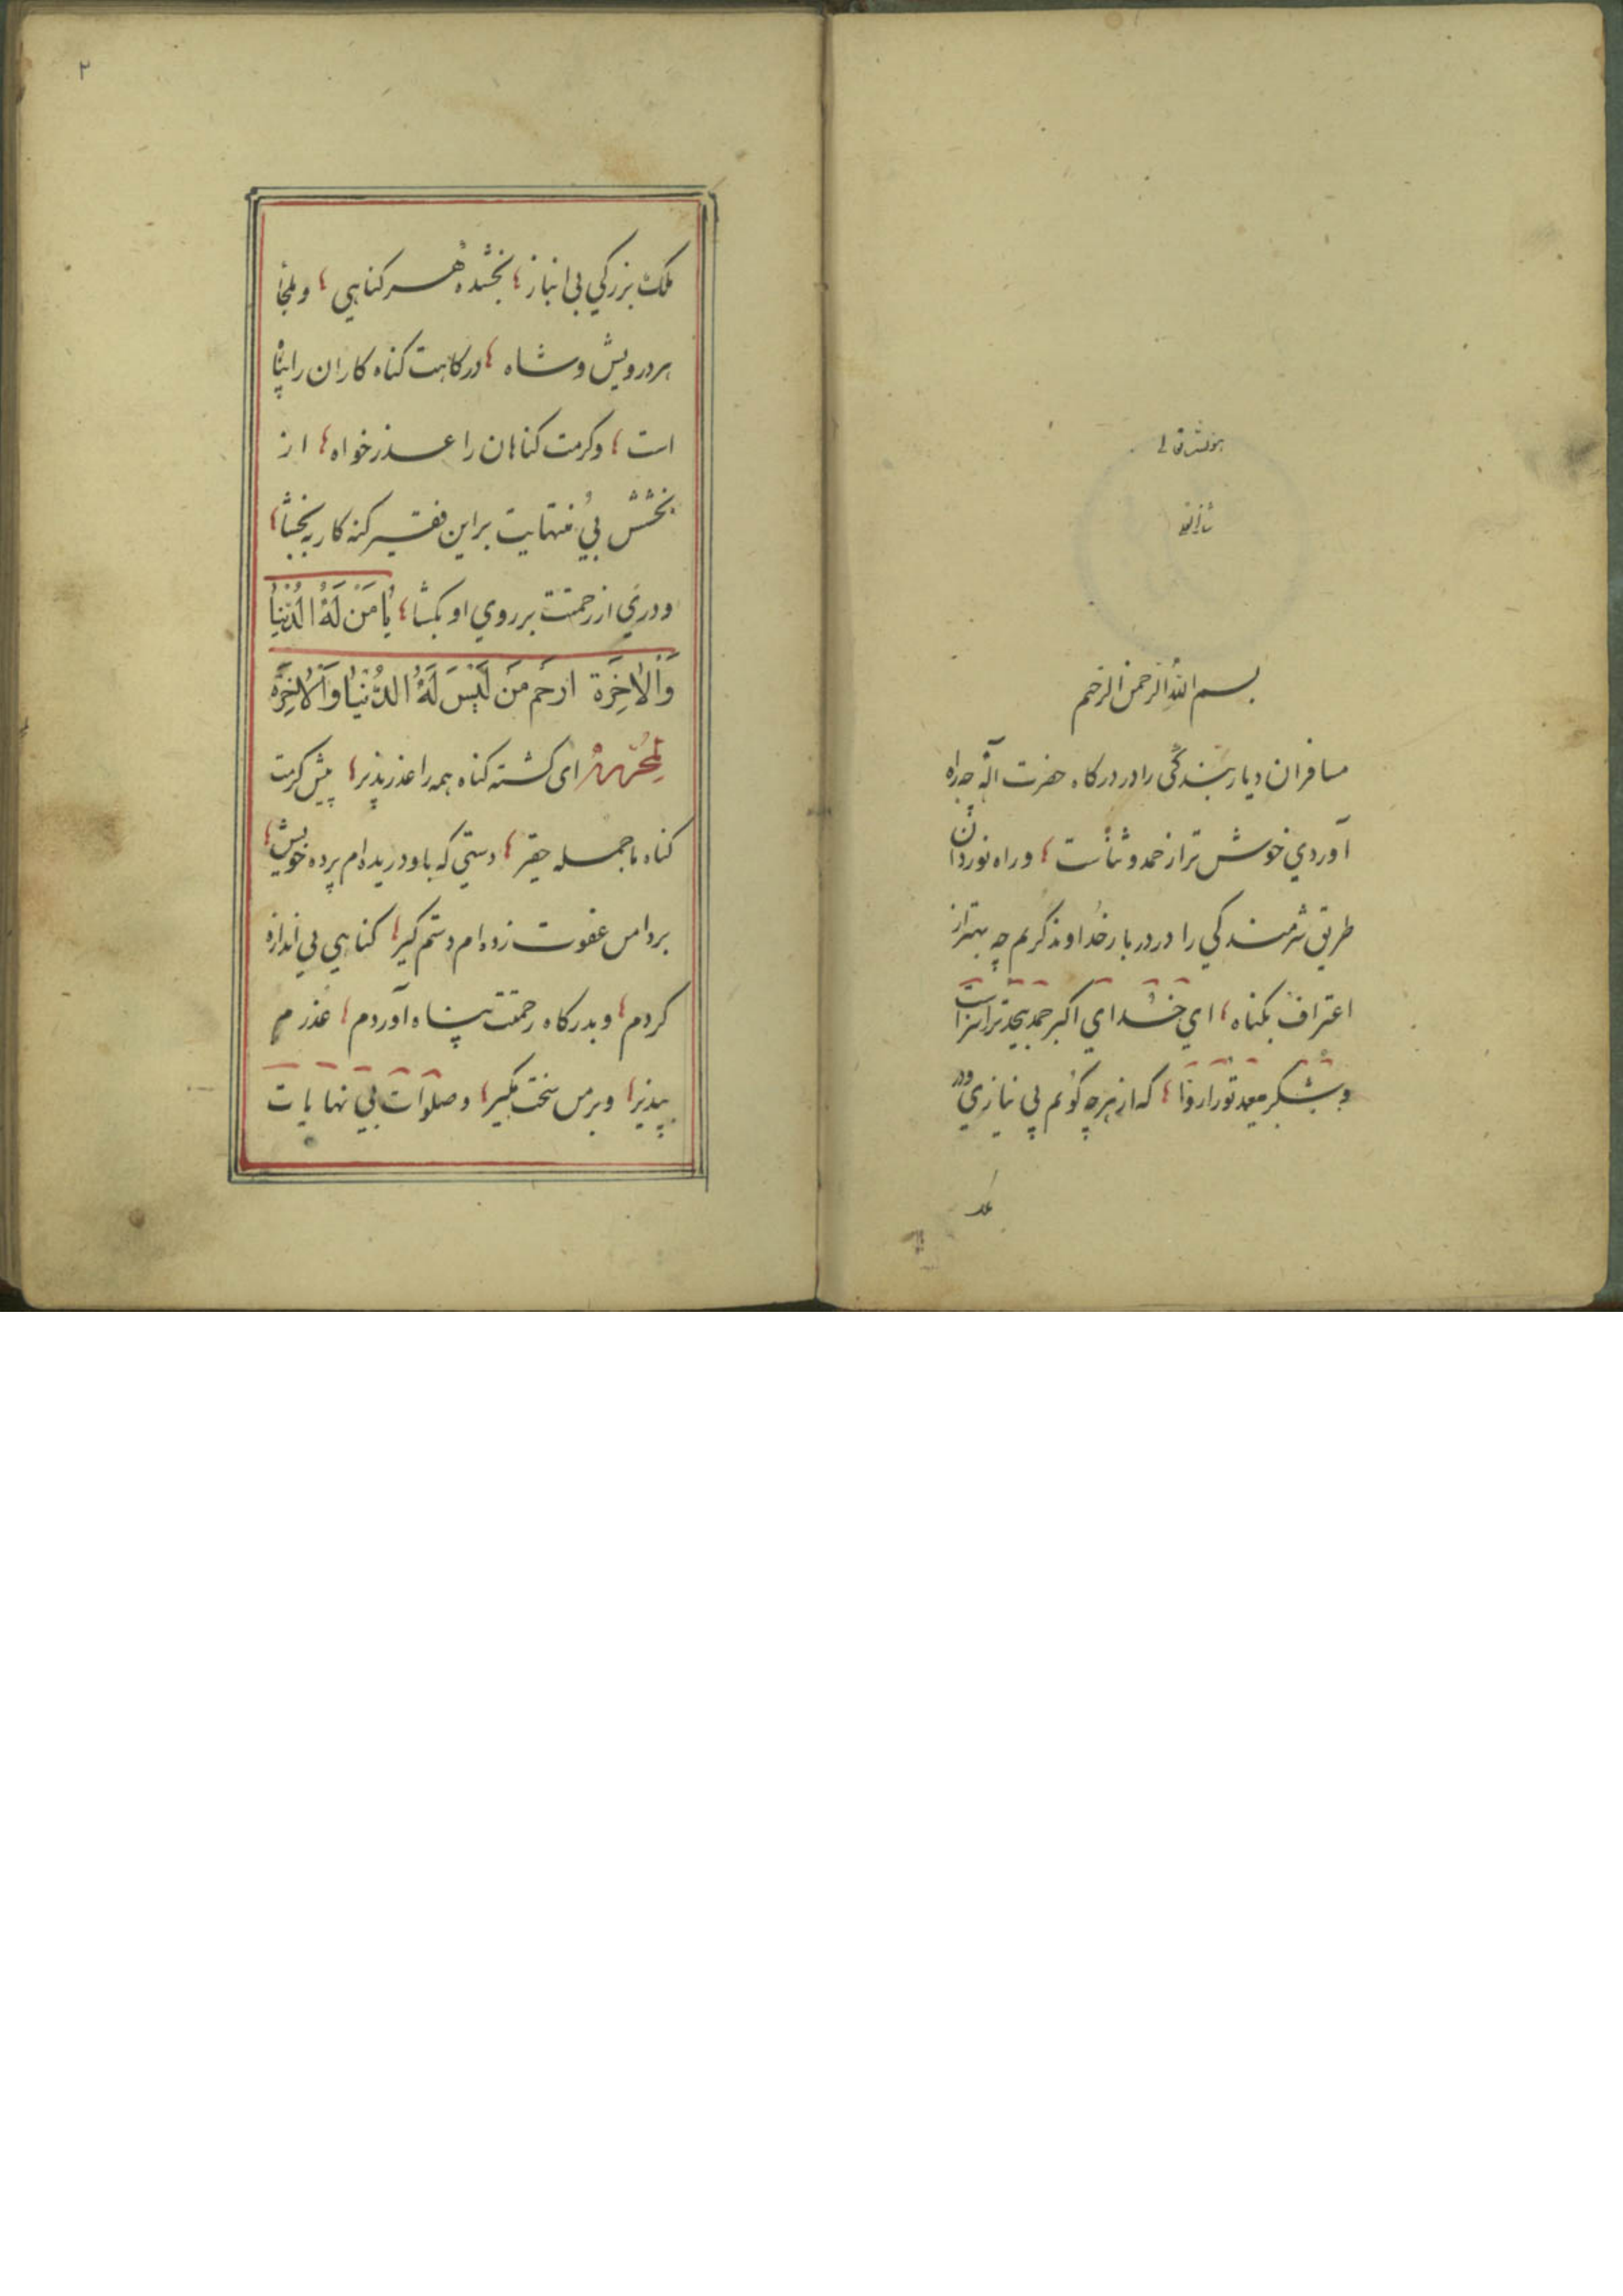 بسم الله الرحمن الرحیم
مسافران دیار بندگی را در درگاه حضرت آله چه راه
آوردي خوش تر از حمد و ثنأست ؛ و راه نوردان
طریق شرمندکي را در دربار خداوند کریم چه بهتر از
اعتراف بکناه ؛ اي خداي اکبر حمد بیحد ترا سزاست
و شکر بیعد تو را روا ؛ که از هرچه کوئم بی نیازي و در
ملک
۲
ملک بزرکي بی انباز ؛ بخشنده هر کناهي ؛ و ملجأ
هر درویش و شاه ؛ درکاهت کناه کاران را پناه
است ؛ و کرمت کناهان را عذر خواه ؛ از
بخشش بي منتهایت بر این فقیر کنه کار ببخشا ؛
و دري از رحمتت بر روي او بکشا ؛ يا مَن لَهُ الدُّنيا
وَالاخِرَة ارحَم مَن لَيسَ لَهُ الدُّنيا وَالاخِرَة
لمحرره ای کشته کناه همه را عذر پذیر ؛ پیش کرمت
کناه ما جمله حقیر ؛ دستي که باو دریده ام پرده خویش ؛
بر دامن عفوت زده ام دستم کیر ؛ کناهي بي اندازه
کردم ؛ و بدرکاه رحمتت پناه آوردم ؛ عذرم
بپذیر ؛ و بر من سخت مکیر ؛ و صلوات بي نهایات